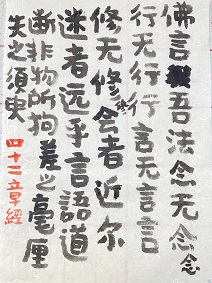 佛言吾法念无念念
行无行行言无言言
修无修修会者近尔
迷者远乎言語道
断非物所拘差之毫厘
失之须臾
四十二章經